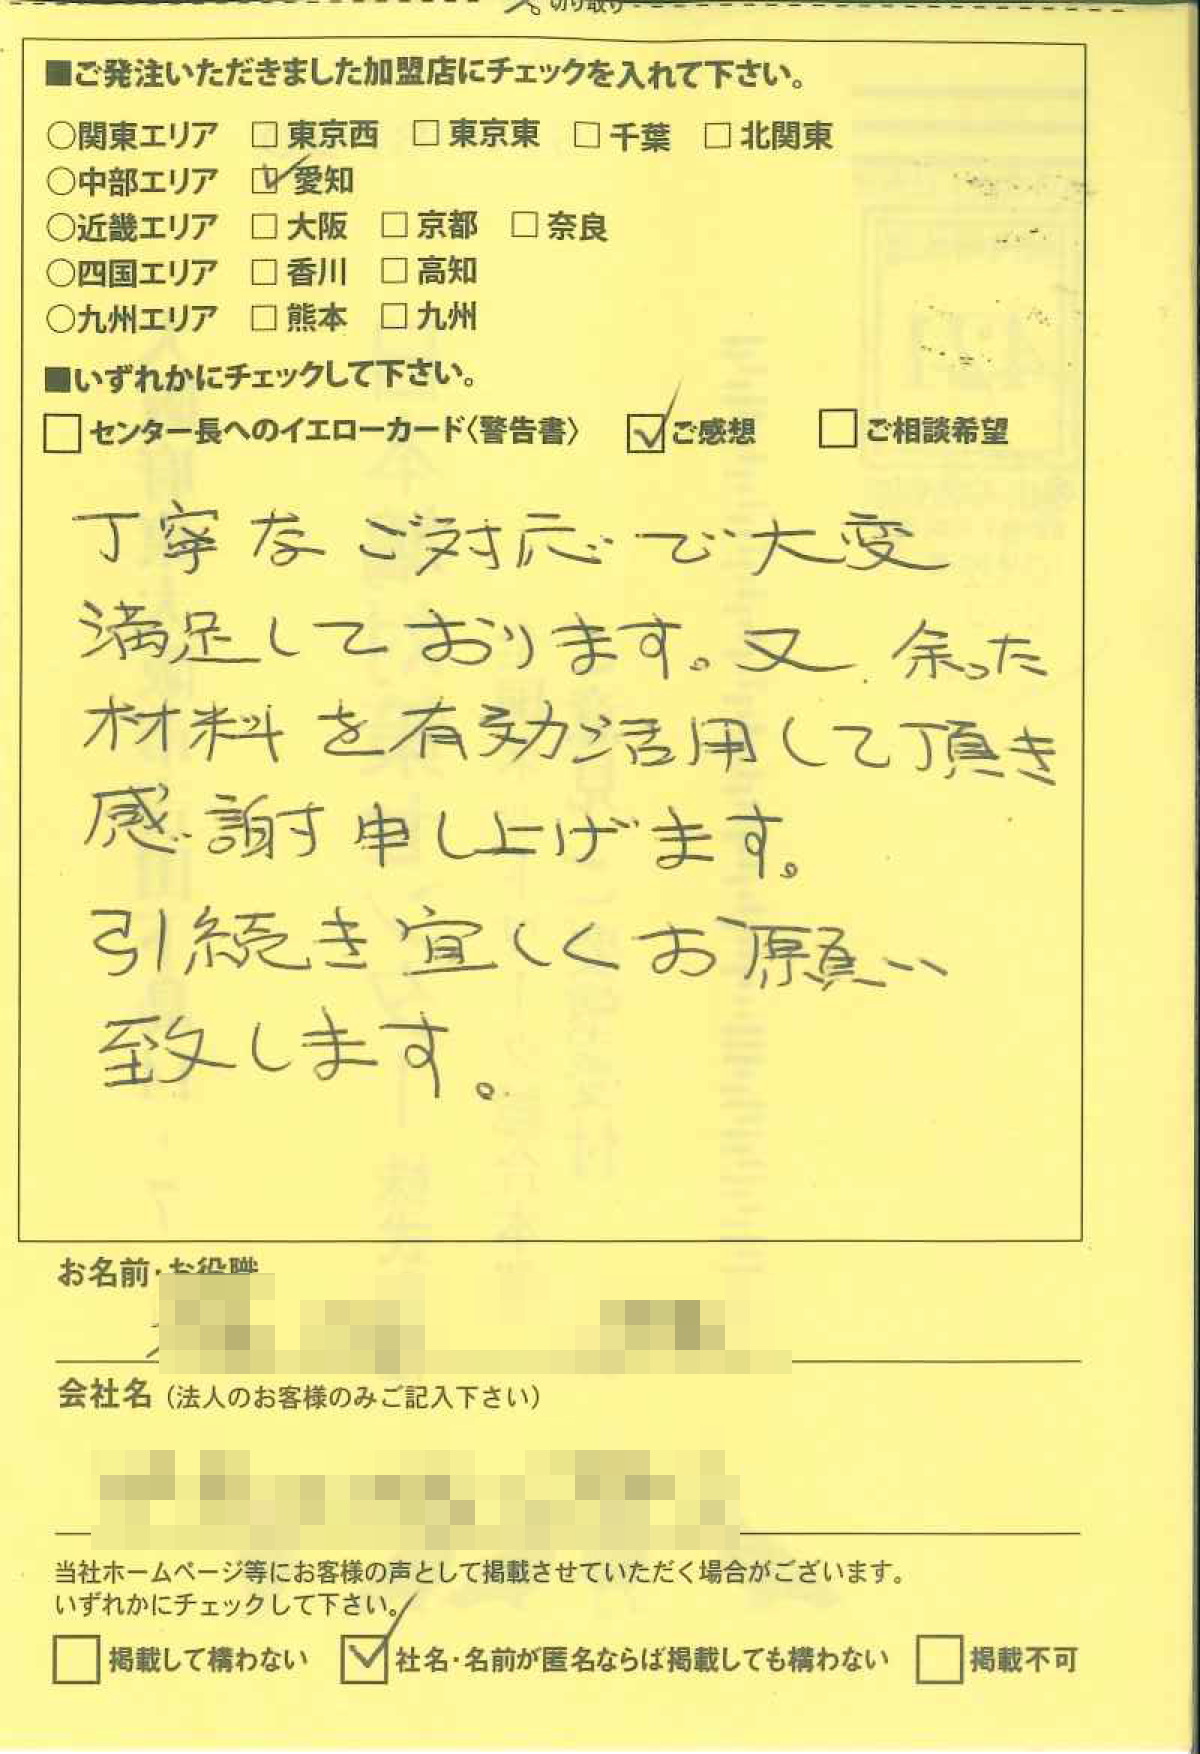 切り取り
■ご発注いただきました加盟店にチェックを入れて下さい。
○関東エリア □ 東京西 □ 東京東 □ 千葉 □ 北関東
○中部エリア ☑ 愛知
○近畿エリア □ 大阪 □ 京都 □ 奈良
○四国エリア □ 香川 □ 高知
○九州エリア □ 熊本 □ 九州
■いずれかにチェックして下さい。
□ センター長へのイエローカード〈警告書〉 ☑ ご感想 □ ご相談希望
丁寧なご対応で大変
満足しております。又、余った
材料を有効活用して頂き
感謝申し上げます。
引続き宜しくお願い
致します。
お名前・お役職
会社名（法人のお客様のみご記入下さい）
当社ホームページ等にお客様の声として掲載させていただく場合がございます。
いずれかにチェックして下さい。
□ 掲載して構わない ☑ 社名・名前が匿名ならば掲載しても構わない □ 掲載不可